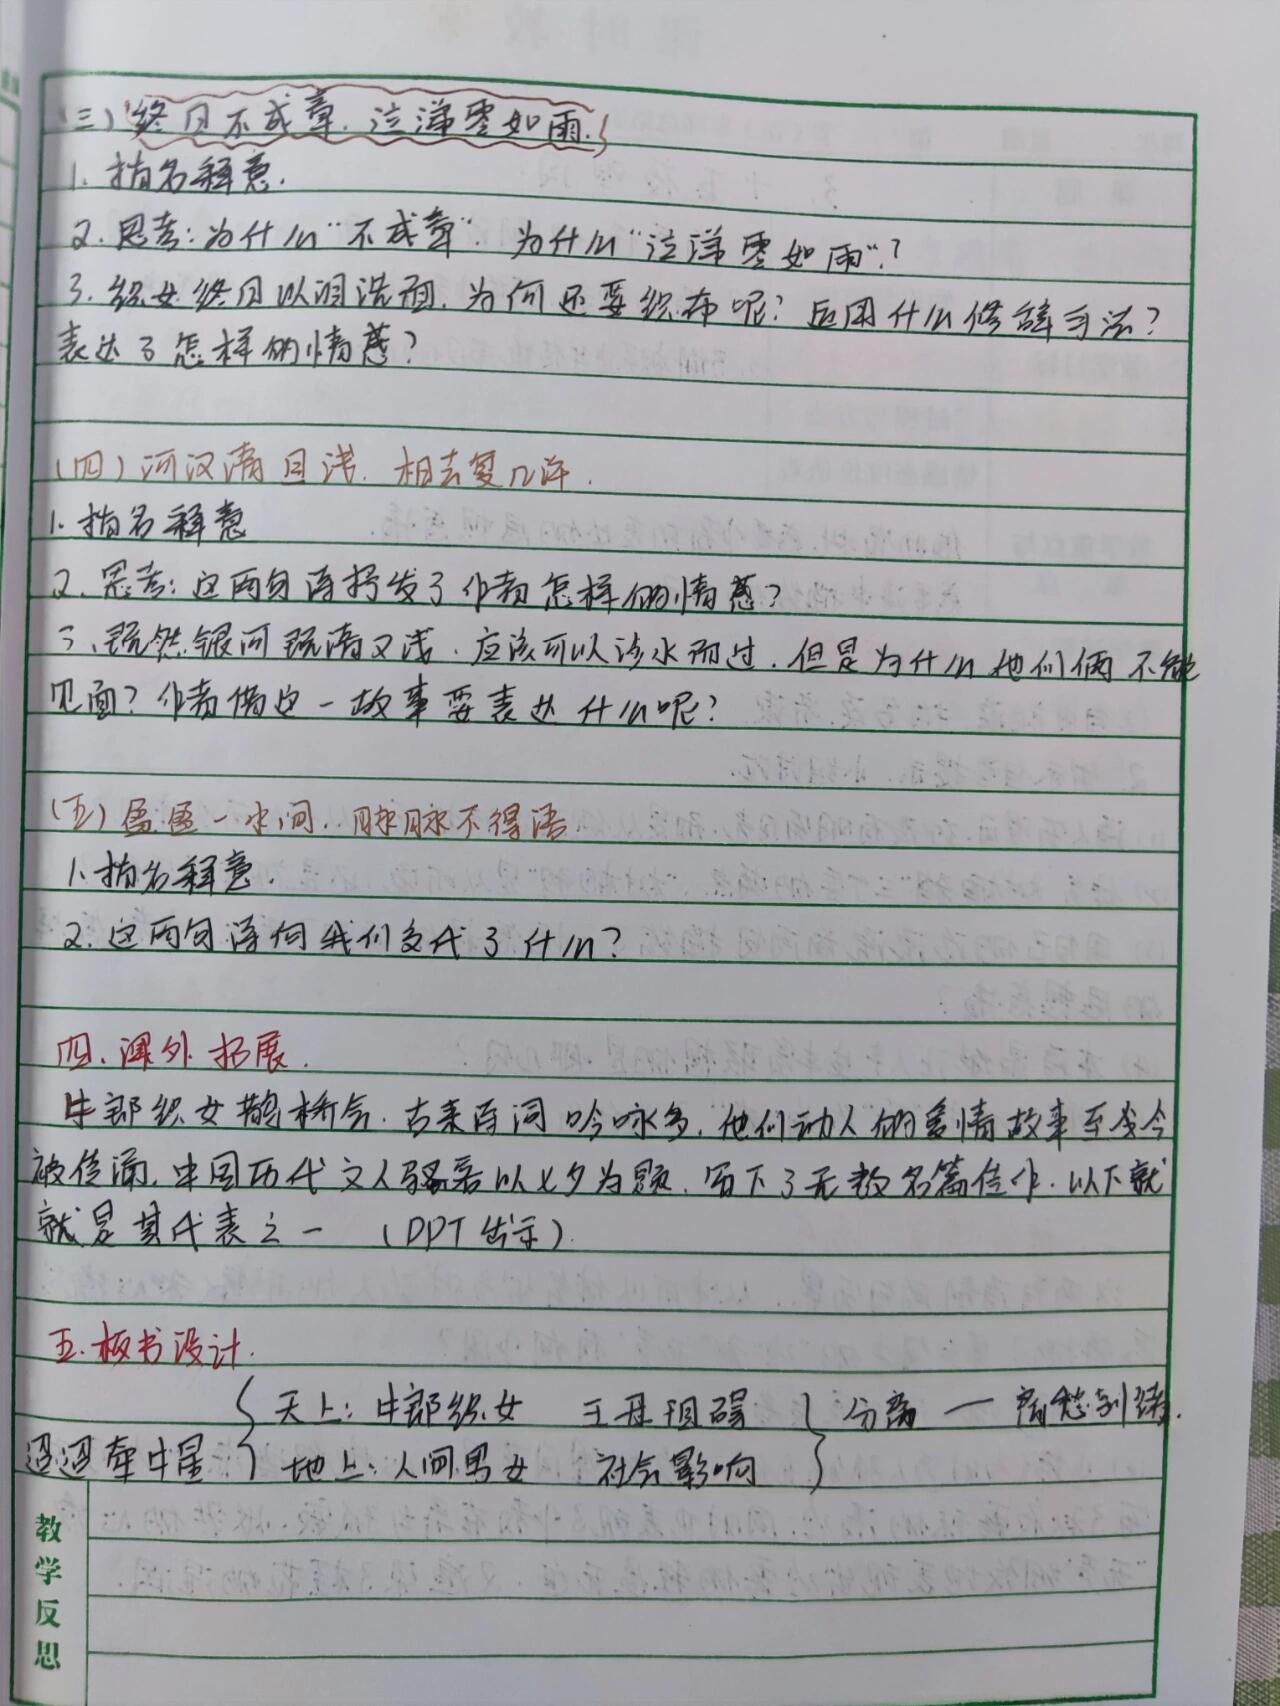 (三)终日不成章,泣涕零如雨.
1. 指名释意.
2. 思考:为什么"不成章",为什么"泣涕零如雨"?
3. 织女终日以泪洗面,为何还要织布呢?应用什么修辞手法?
表达了怎样的情感?
(四)河汉清且浅,相去复几许.
1. 指名释意
2. 思考:这两句诗抒发了作者怎样的情感?
3、既然银河既清又浅,应该可以涉水而过,但是为什么他们俩不能
见面?作者借这一故事要表达什么呢?
(五)盈盈一水间,脉脉不得语
1. 指名释意.
2. 这两句诗向我们交代了什么?
四、课外拓展.
牛郎织女鹊桥会,古来诗词吟咏多,他们动人的爱情故事至今
被传诵,中国历代文人骚客以七夕为题,写下了无数名篇佳作,以下就
就是其代表之一 (PPT出示)
五.板书设计.
天上:牛郎织女 王母阻碍 分离 — 离愁别绪.
迢迢牵牛星 地上:人间男女 社会影响
教学反思